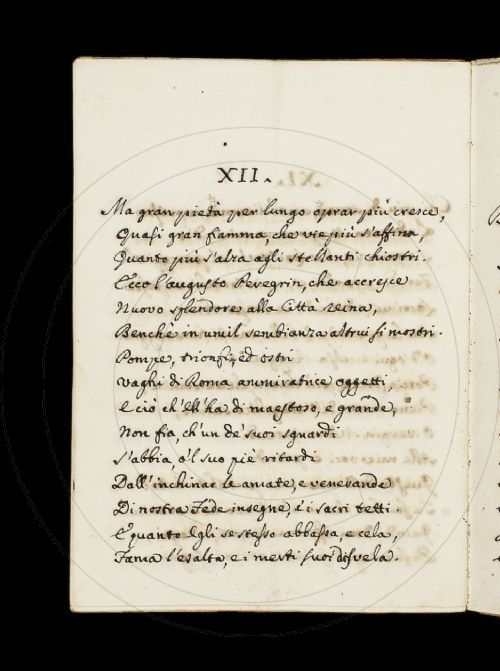 XII.
Ma gran pietà per lungo oprar più cresce,
Quasi gran fiamma, che vie più s'affina,
Quanto più s'alza agli stellanti chiostri.
Ecco l'augusto Peregrin, che accresce
Nuovo splendore alla Città reina,
Benchè in umil sembianza altrui si mostri.
Pompe, trionfi, ed ostri
Vaghi di Roma ammiratrice oggetti,
E ciò ch'Ell'ha di maestoso, e grande,
Non fia, ch'un de' suoi sguardi
S'abbia, o'l suo piè ritardi
Dall'inchinar le amate, e venerande
Di nostra Fede insegne, e i sacri tetti.
E quanto Egli se stesso abbassa, e cela,
Fama l'esalta, e i merti suoi disvela.